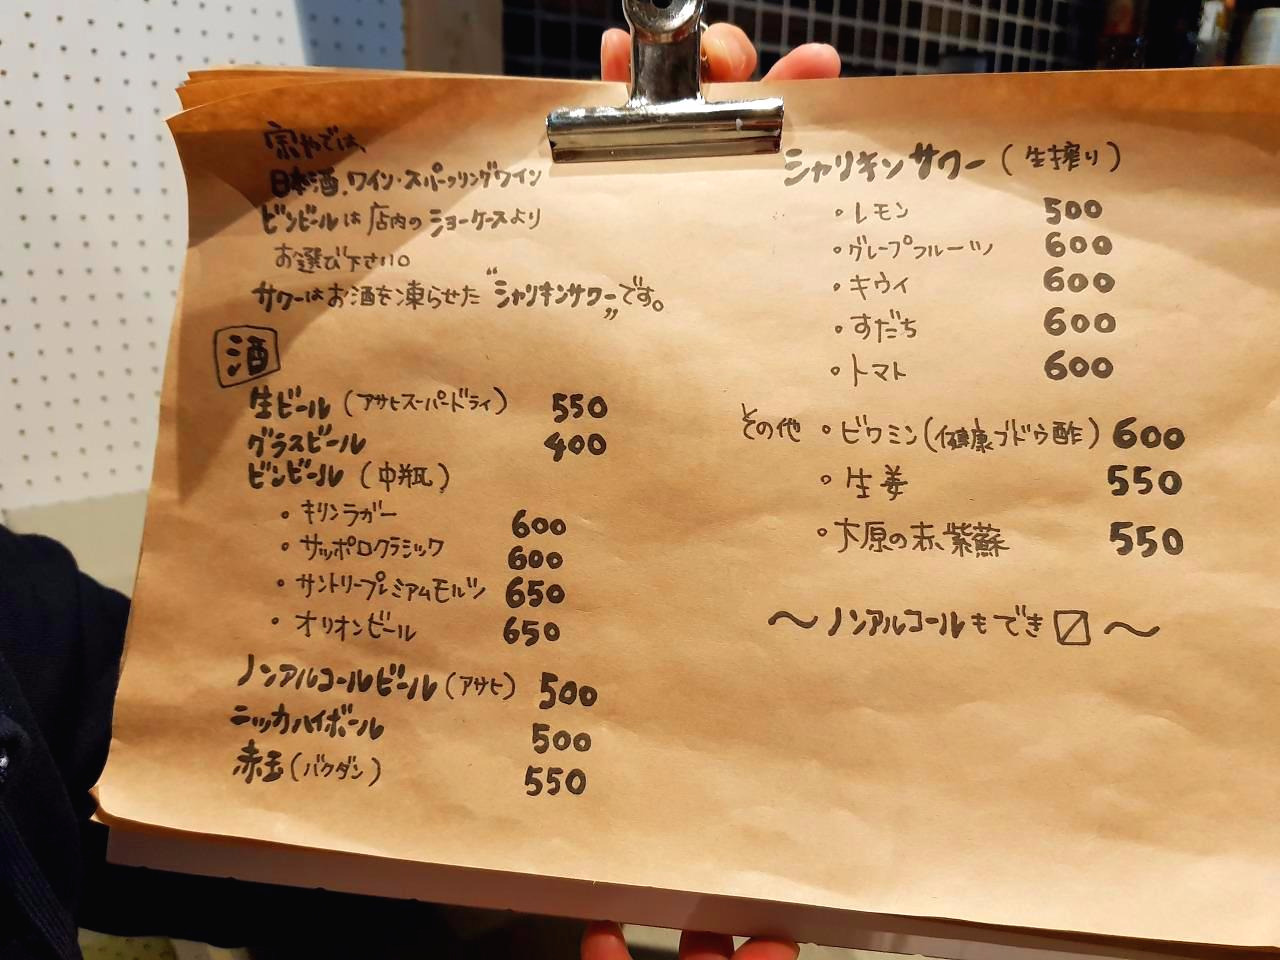 家やでは、
日本酒、ワイン・スパークリングワイン
ビンビールは店内のショーケースより
お選び下さい。
サワーはお酒を凍らせた“シャリキンサワー”です。
酒
生ビール(アサヒスーパードライ) 550
グラスビール 400
ビンビール(中瓶)
・キリンラガー 600
・サッポロクラシック 600
・サントリープレミアムモルツ 650
・オリオンビール 650
ノンアルコールビール(アサヒ) 500
ニッカハイボール 500
赤玉(バクダン) 550
シャリキンサワー(生搾り)
・レモン 500
・グレープフルーツ 600
・キウイ 600
・すだち 600
・トマト 600
その他 ・ビワミン(健康ブドウ酢) 600
・生姜 550
・大原の赤紫蘇 550
〜ノンアルコールもでき〼〜